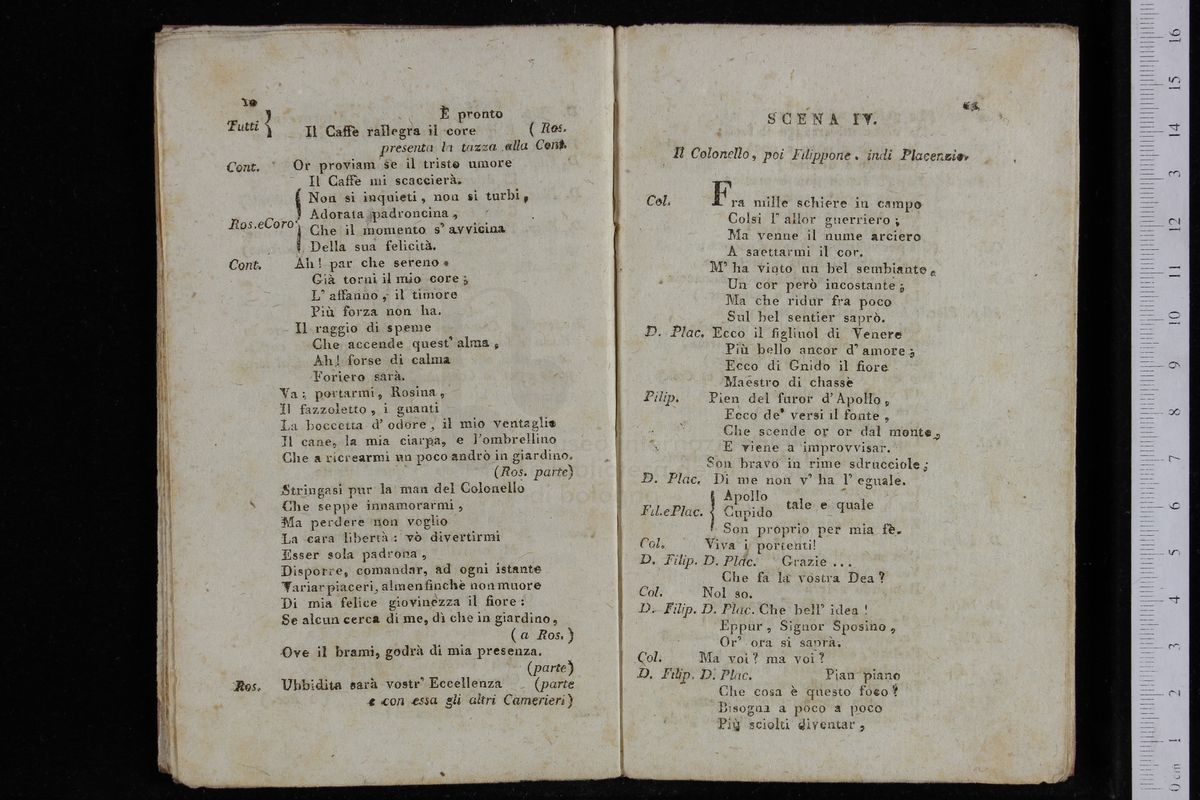 10
È pronto
Tutti } Il Caffè rallegra il core ( Ros.
presenta la tazza alla Cont.
Cont. Or proviam se il tristo umore
Il Caffè mi scaccierà.
Non si inquieti, non si turbi,
Adorata padroncina,
Ros. e Coro { Che il momento s' avvicina
Della sua felicità.
Cont. Ah! par che sereno
Già torni il mio core;
L' affanno, il timore
Più forza non ha.
Il raggio di speme
Che accende quest' alma,
Ah! forse di calma
Foriero sarà.
Va; portarmi, Rosina,
Il fazzoletto, i guanti
La boccetta d' odore, il mio ventaglio
Il cane, la mia ciarpa, e l'ombrellino
Che a ricrearmi un poco andrò in giardino.
(Ros. parte)
Stringasi pur la man del Colonello
Che seppe innamorarmi,
Ma perdere non voglio
La cara libertà: vò divertirmi
Esser sola padrona,
Disporre, comandar, ad ogni istante
Variar piaceri, almen finchè non muore
Di mia felice giovinezza il fiore:
Se alcun cerca di me, dì che in giardino,
( a Ros. )
Ove il brami, godrà di mia presenza.
(parte)
Ros. Ubbidita sarà vostr' Eccellenza (parte
e con essa gli altri Camerieri)
SCENA IV.
Il Colonello, poi Filippone. indi Placenzio.
Col. Fra mille schiere in campo
Colsi l' allor guerriero;
Ma venne il nume arciero
A saettarmi il cor.
M' ha vinto un bel sembiante,
Un cor però incostante;
Ma che ridur fra poco
Sul bel sentier saprò.
D. Plac. Ecco il figliuol di Venere
Più bello ancor d' amore;
Ecco di Gnido il fiore
Maestro di chassè
Filip. Pien del furor d' Apollo,
Ecco de' versi il fonte,
Che scende or or dal monte,
E viene a improvvisar.
Son bravo in rime sdrucciole;
D. Plac. Di me non v' ha l' eguale.
Fil. e Plac. { Apollo
Cupido tale e quale
Son proprio per mia fè.
Col. Viva i portenti!
D. Filip. D. Plac. Grazie ...
Che fa la vostra Dea?
Col. Nol so.
D. Filip. D. Plac. Che bell' idea!
Eppur, Signor Sposino,
Or' ora si saprà.
Col. Ma voi? ma voi?
D. Filip. D. Plac. Pian piano
Che cosa è questo foco?
Bisogna a poco a poco
Più sciolti diventar,